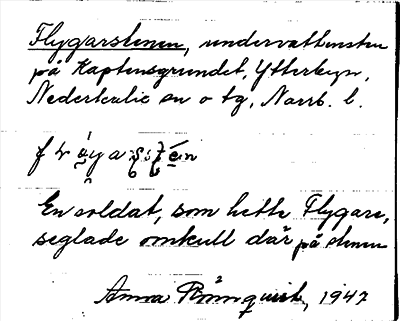 Flygarstenen, undervattensten
på Kaptensgrundet, Ytterbyn,
Nederkalix sn o tg, Norrb. l.
En soldat, som hette Flygare,
seglade omkull där på stenen
Anna Rönnquist, 1947